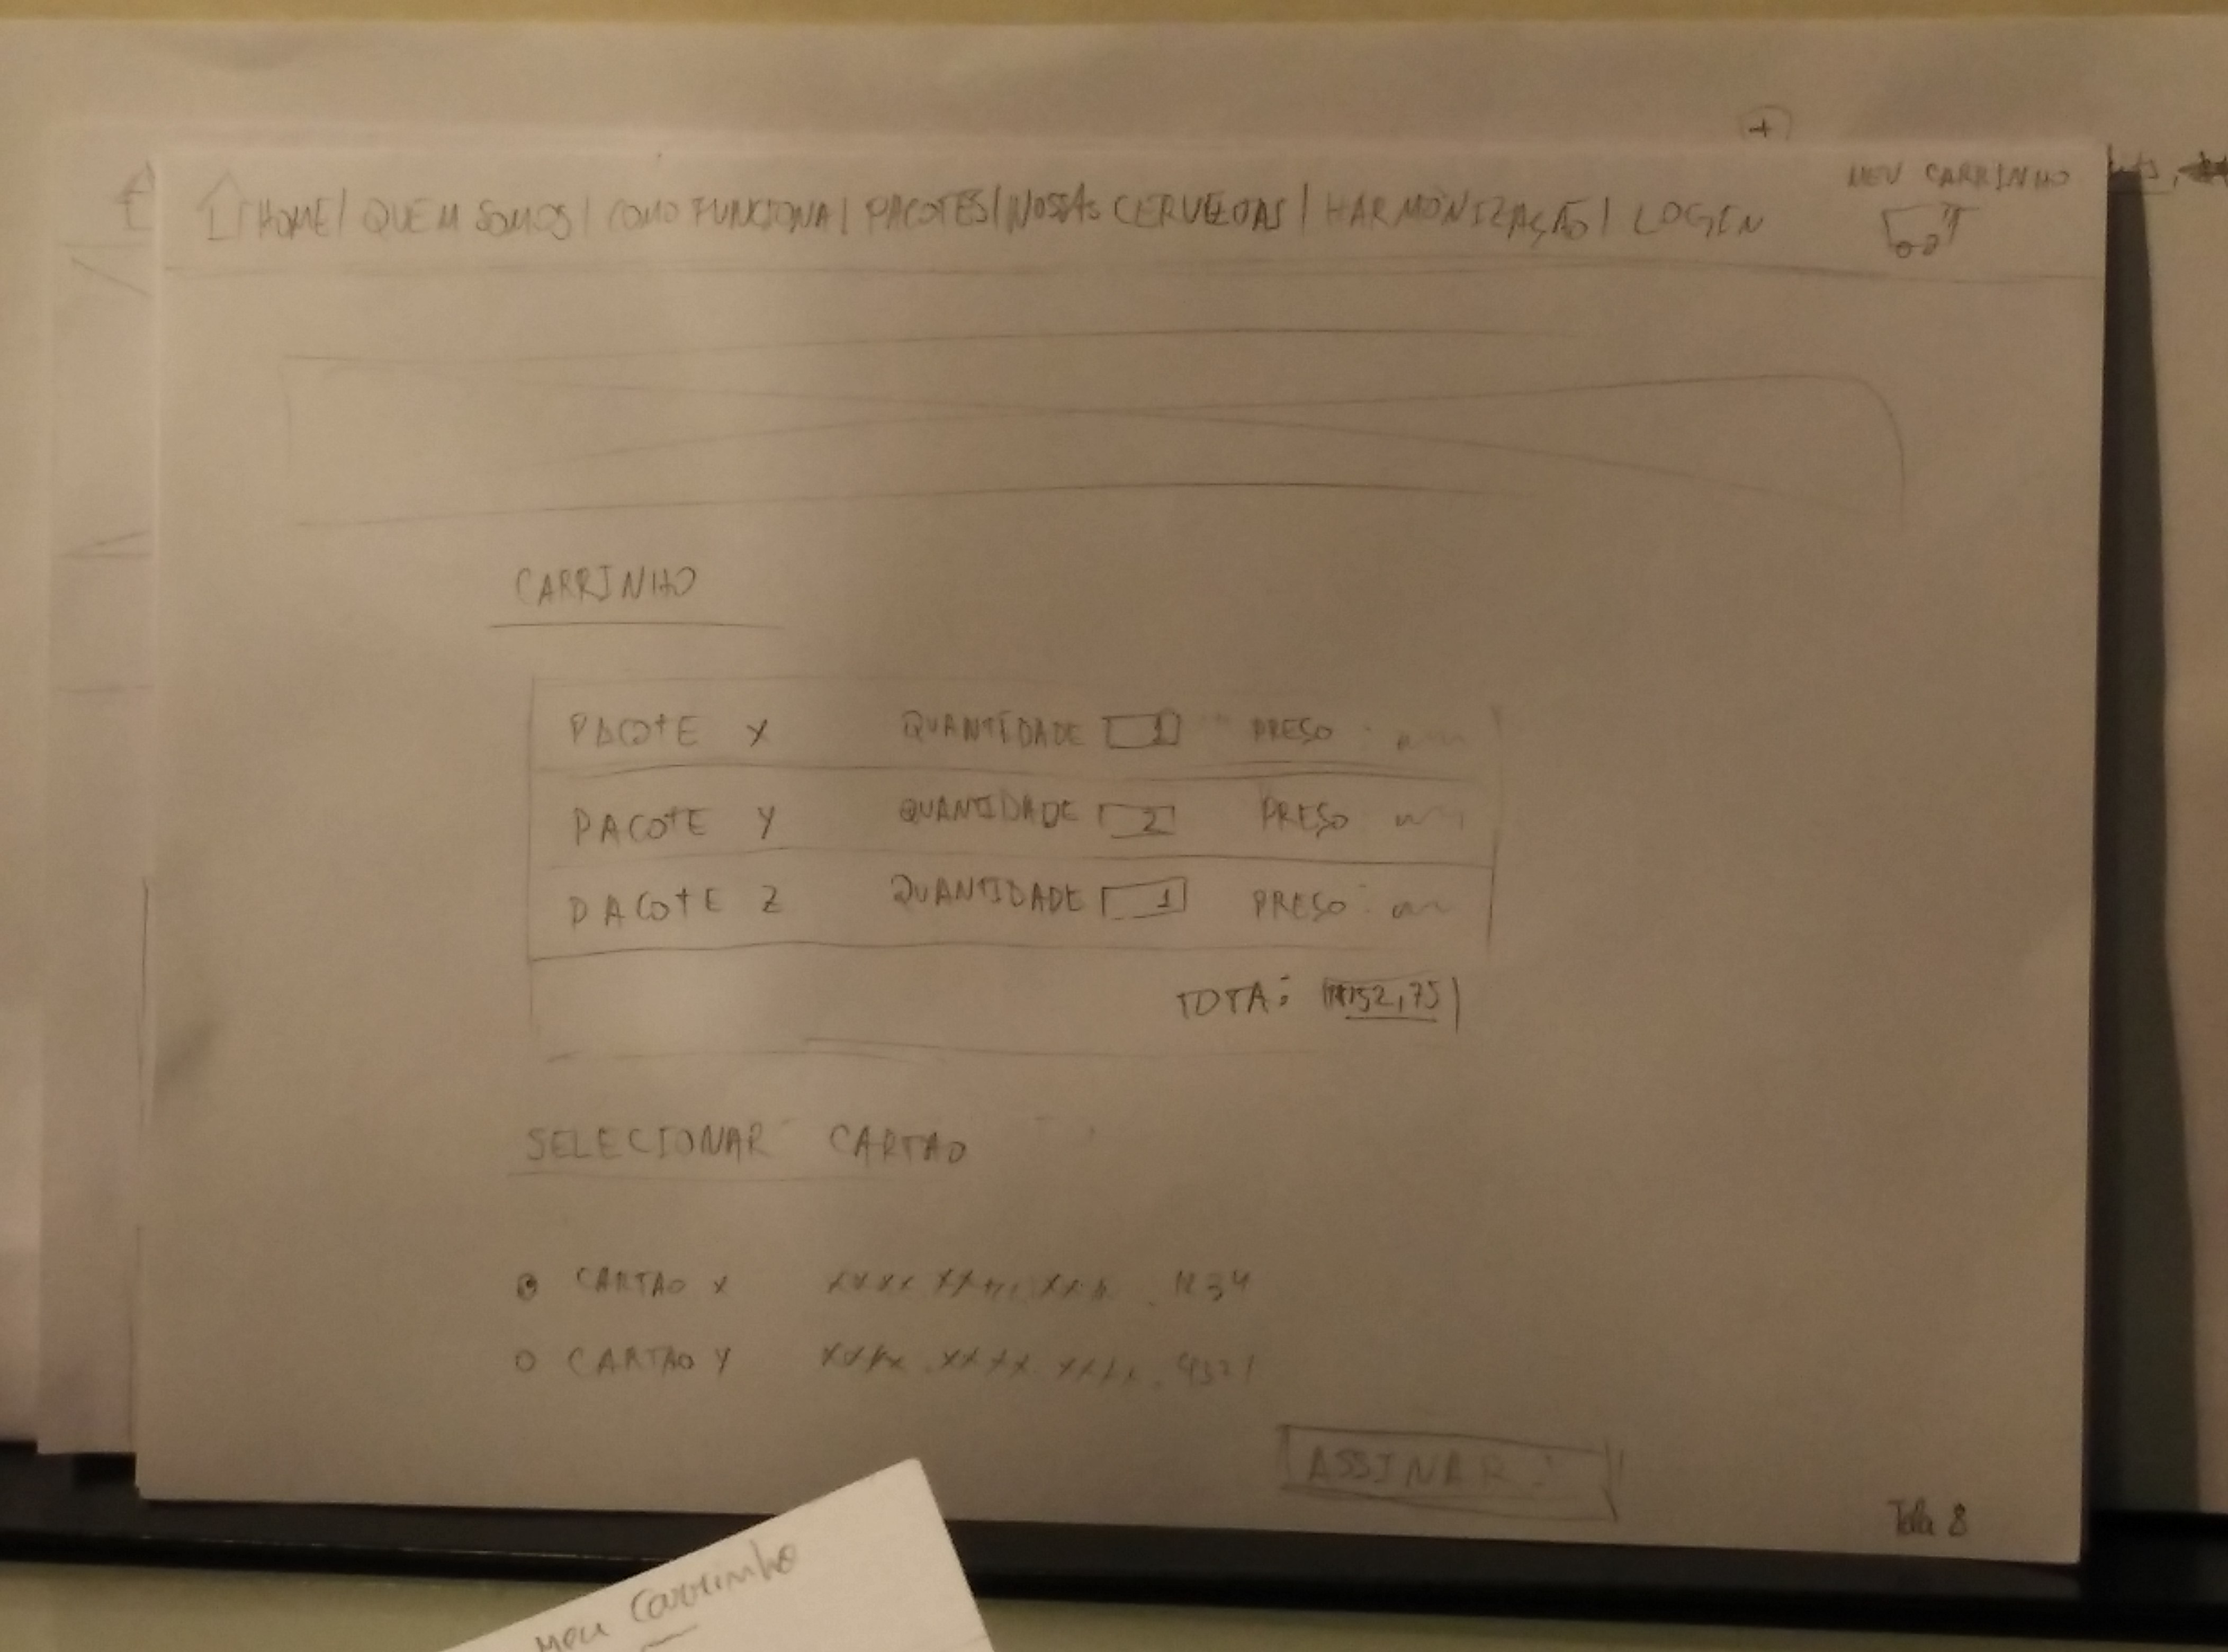 HOME | QUEM SOMOS | COMO FUNCIONA | PACOTES | NOSSAS CERVEJAS | HARMONIZAÇÃO | LOGIN
MEU CARRINHO
CARRINHO
PACOTE X QUANTIDADE 1 PREÇO
PACOTE Y QUANTIDADE 2 PREÇO
PACOTE Z QUANTIDADE 1 PREÇO:
TOTA: 152,75
SELECIONAR CARTAO
CARTAO X XXXX.XXXX.XXXX.1234
CARTAO Y XXXX.XXXX.XXXX.4321
ASSINAR
Tela 8
Meu Carrinho